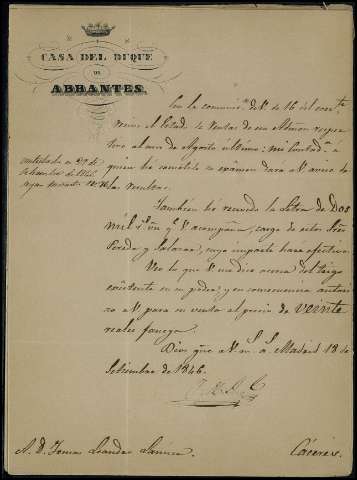 CASA DEL DUQUE
DE
ABRANTES.
Con la comunic.ⁿ de V. de 16 del corr.te
recibí el Estado de Ventas de esa Admon respec
tivo al mes de Agosto último: mi Contad.ª á
quien he cometido su exámen dará a V. aviso de
las resultas.
contestada en 27 de
Setiembre de 1846
También he recibido la Letra de Dos
mil r.s v.n q.e V. acompaña, cargo de estos Sres
Pereda y Salazar, cuyo importe haré efectivo.
Veo lo que V. me dice acerca del trigo
existente en su poder; y en consecuencia autori
zo a V. para su venta al precio de Veinte
reales fanega.
Dios gue á V. m.s a.s Madrid 18 de
Setiembre de 1846.
S.r D. Tomas Leandro
Cáceres.